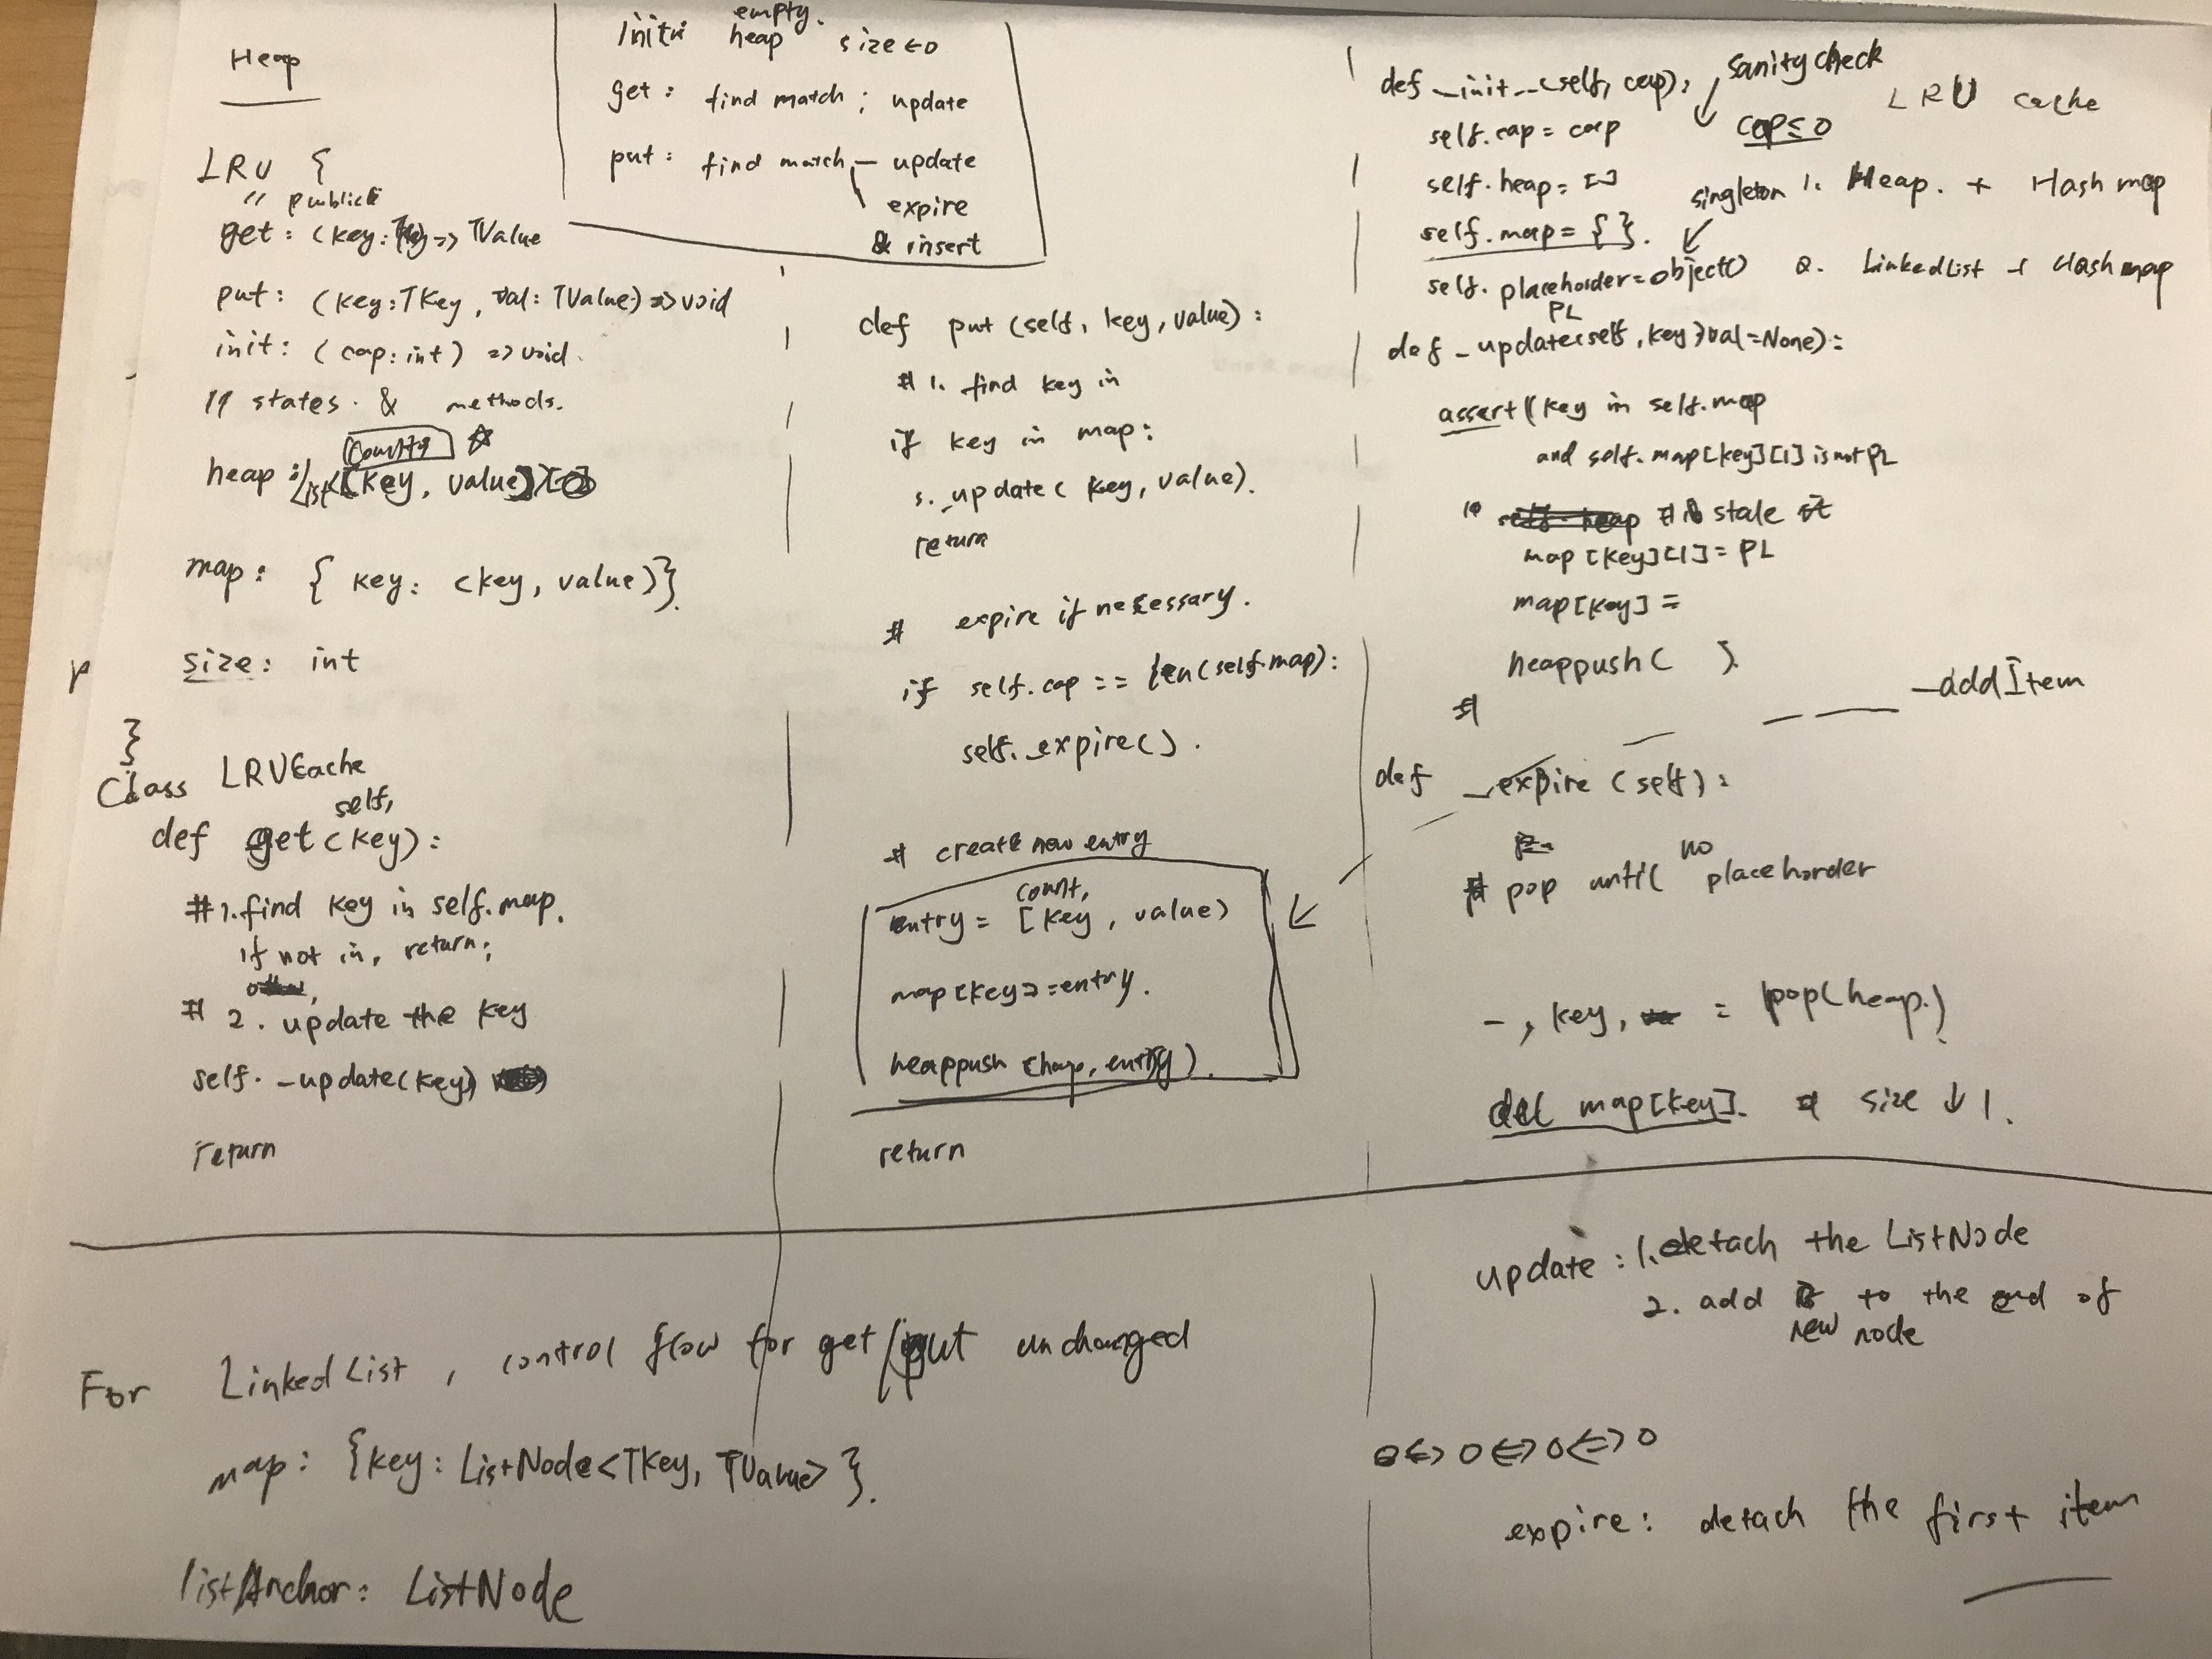 Heap
LRU {
// public
get: (key: TKey) => TValue
put: (key: TKey, val: TValue) => void
init: (cap: int) => void.
// states & methods.
heap: List<[key, value]>
map: { key: (key, value)}.
size: int
}
Class LRUCache
self,
def get(key):
#1. find key in self.map.
if not in, return;
# 2. update the key
self. _update(key)
return
empty.
init: heap size ← 0
get: find match; update
put: find match — update
expire
& insert
def put (self, key, value):
# 1. find key in
if key in map:
s._update( key, value).
return
# expire if necessary.
if self.cap == len(self.map):
self._expire().
# create new entry
count,
entry = [key, value)
map[key]=entry.
heappush (heap, entry).
return
def __init__(self, cap):
sanity check
cap≤0
self.cap = cap
self.heap = []
self.map = { }.
singleton
self. placehorder=object()
PL
LRU cache
1. Heap. + Hash map
2. LinkedList + Hash map
def _update(self, key, val=None):
assert((key in self.map
and self.map[key][1] is not PL
# stale it
map [key][1] = PL
map[key] =
heappush( ).
#
_addItem
def _expire (self):
# pop until no placehorder
_, key, = pop(heap.)
del map[key]. # size ↓ 1.
For LinkedList, control flow for get/put unchanged
map: {key: ListNode<TKey, TValue> }.
listAnchor: ListNode
update: 1. detach the ListNode
2. add to the end of
new node
0<=>0<=>0<=>0
expire: detach the first item